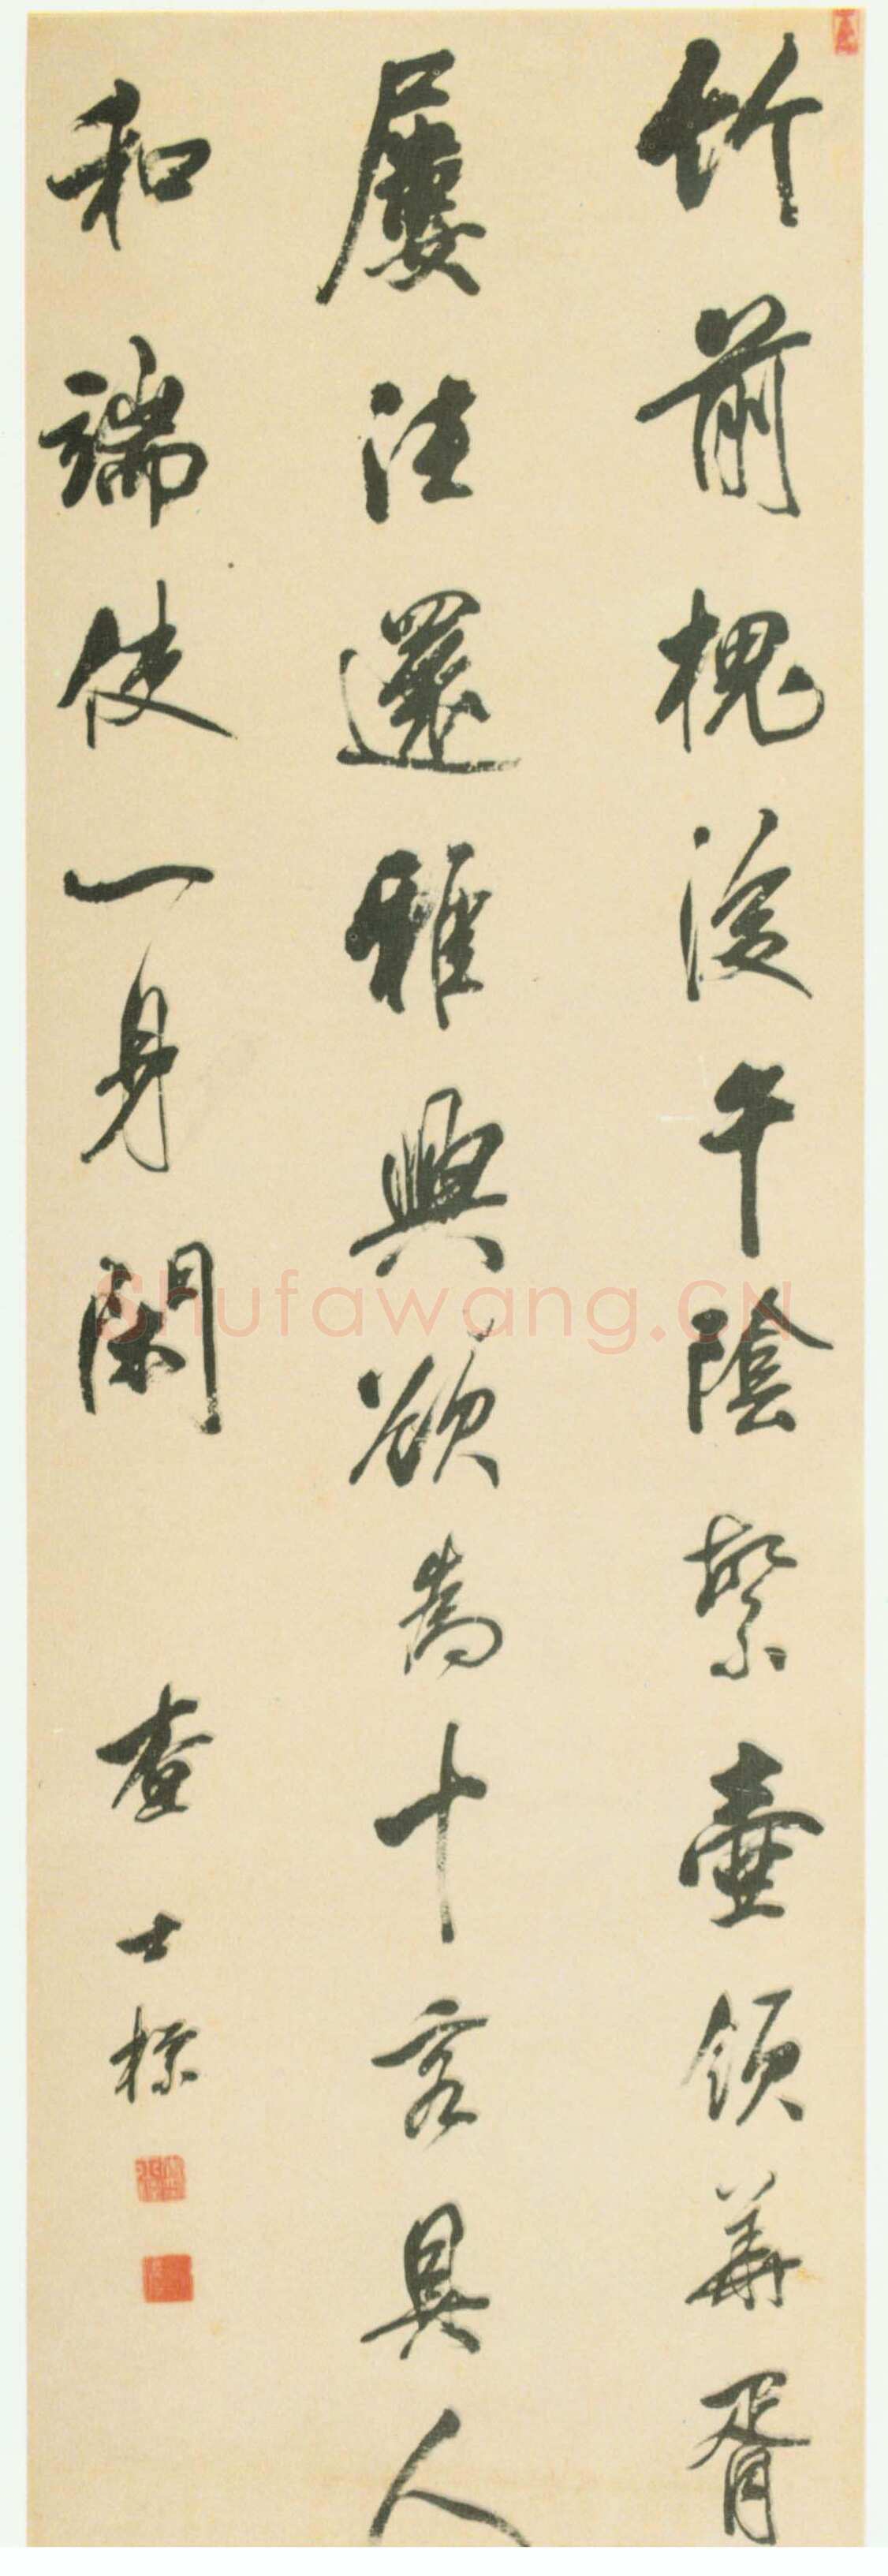 竹前槐後午陰繁壺領華胥
屢往還雅興欲為十客具人
和端使一身閑
查士標
Shufawang.CN